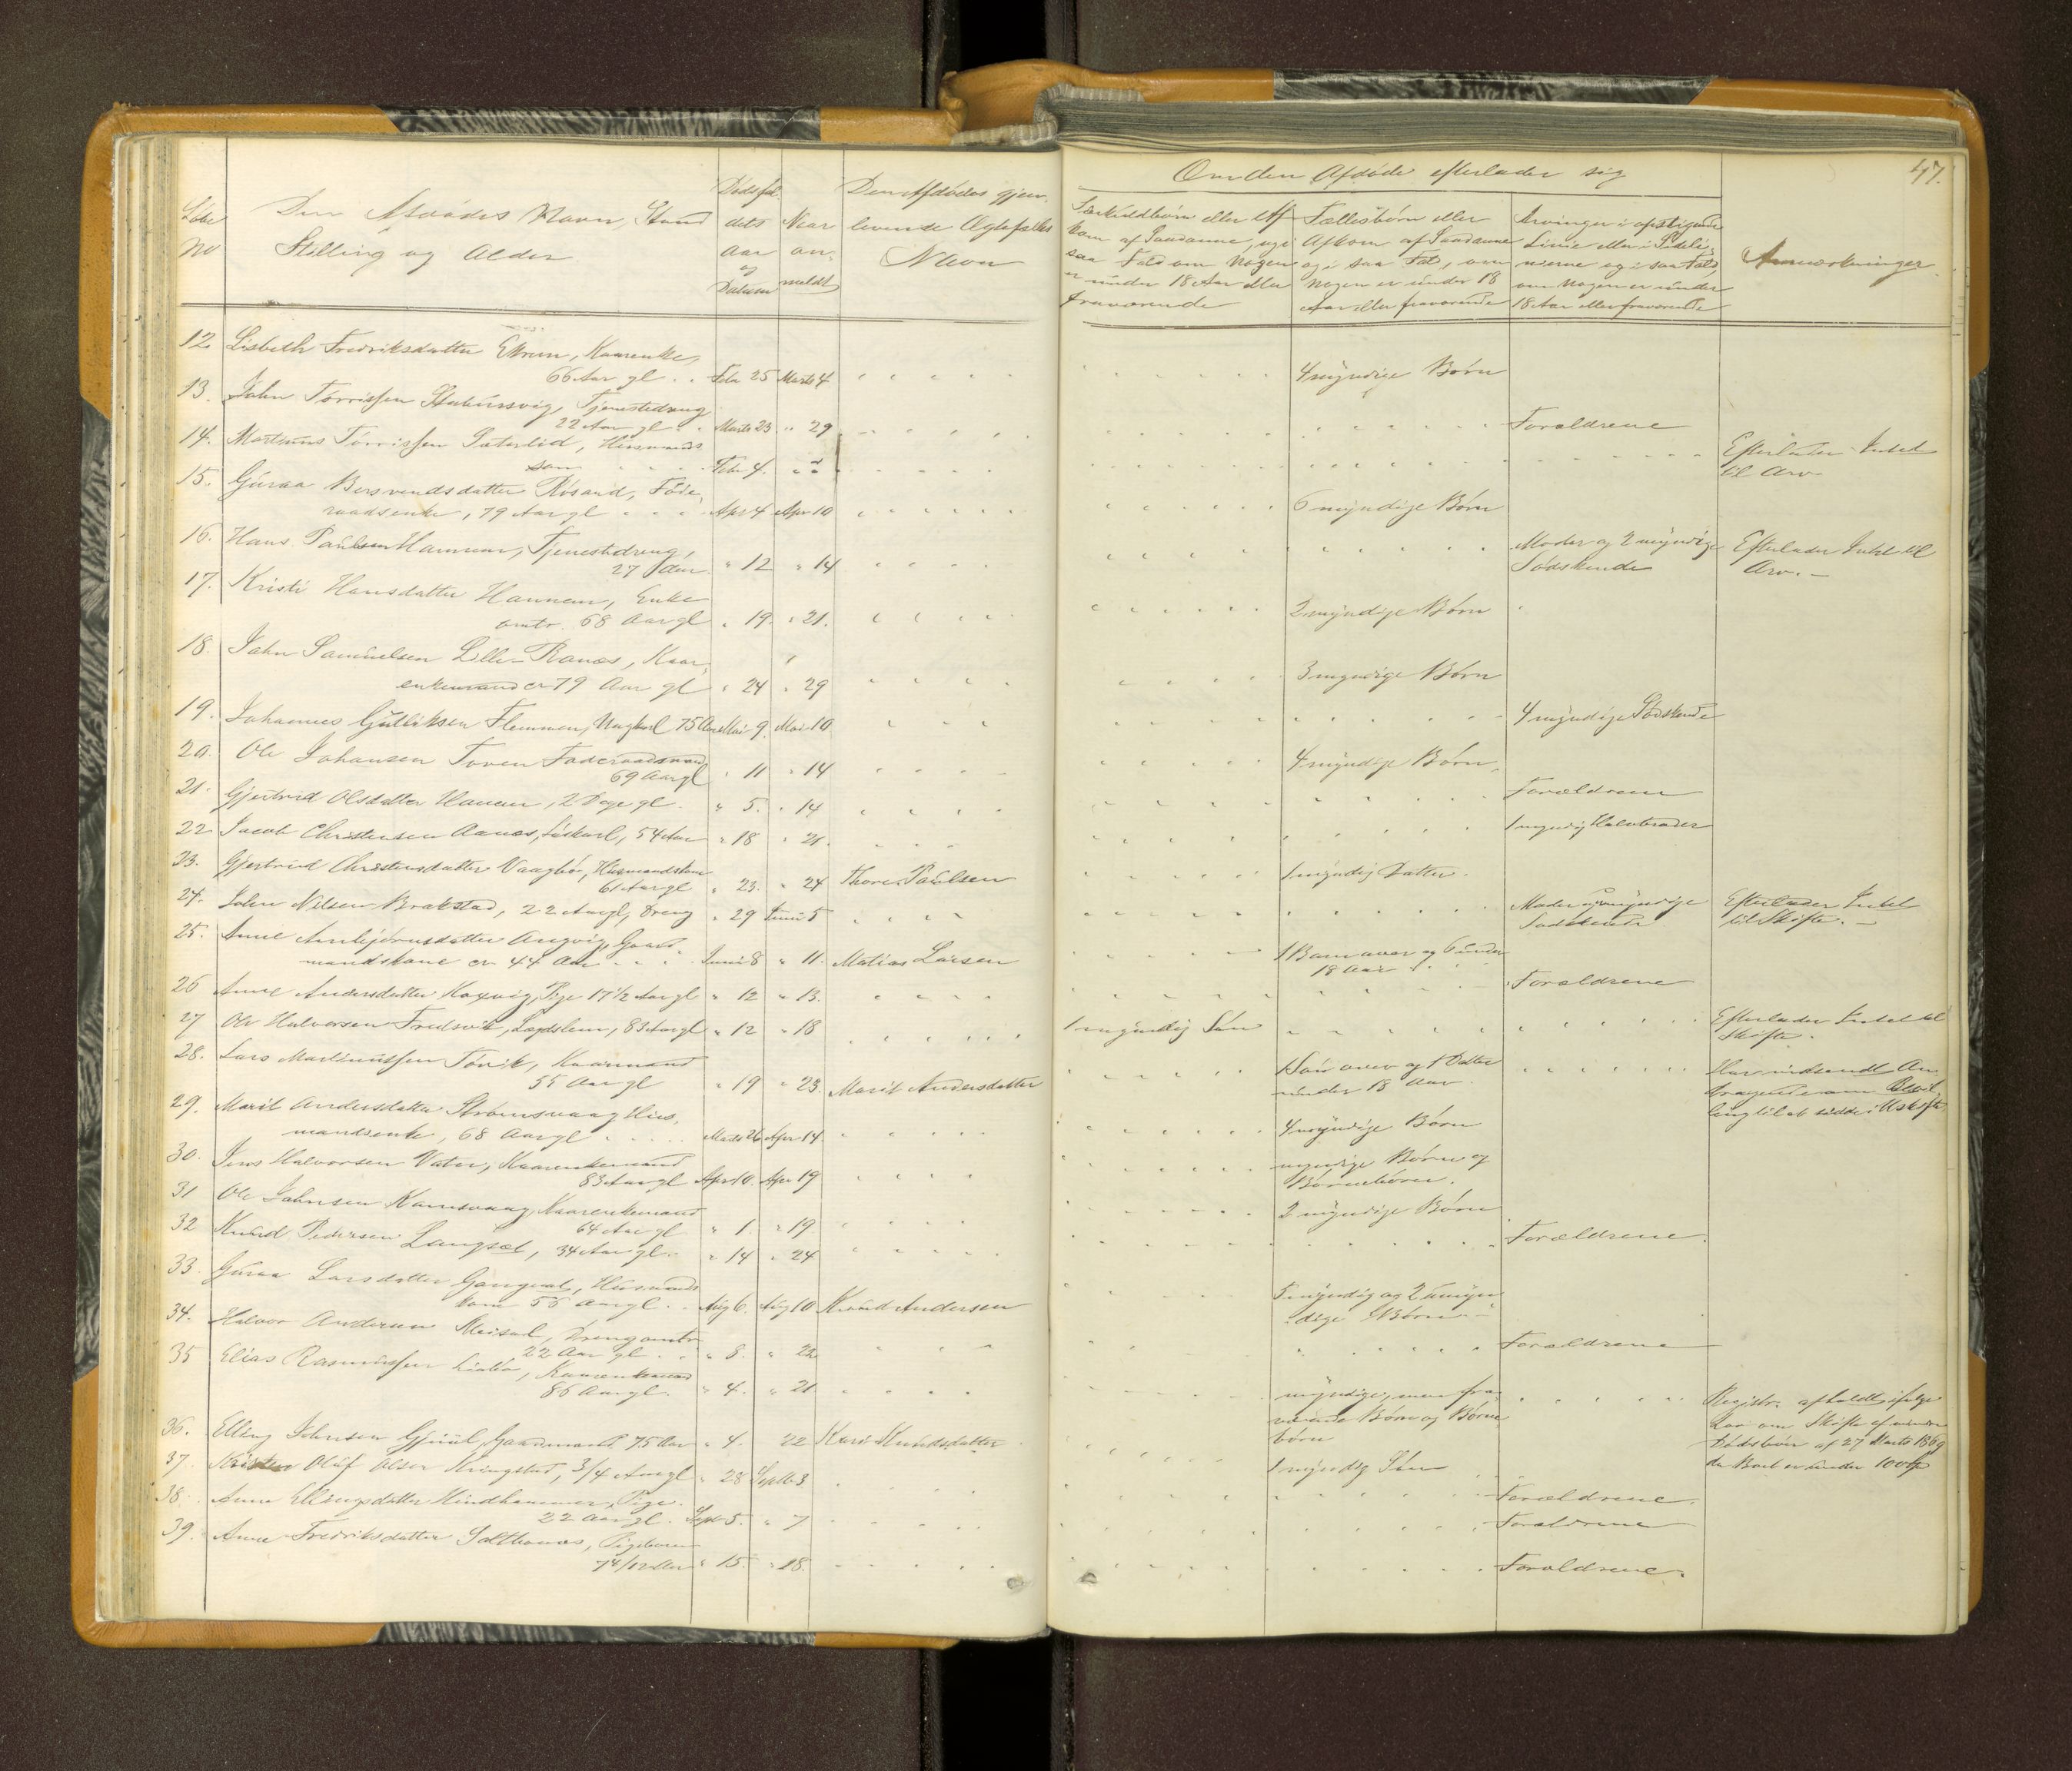 47.
Løbe
No
Den Afdødes Navn, Stand
Stilling og Alder.
Dødsfal
dets
Aar
og
Datum
Naar
an-
meldt
Den Afdødes gjen-
levende Ægtefælles
Navn
Om den Afdøde efterlader sig
Særkuldbørn eller Af-
kom af Saadanne, og i
saa Fald om Nogen
er under 18 Aar eller
fraværende
Fællesbørn eller
Afkom af Saadanne
og i saa Fald, om
Nogen er under 18
Aar eller fraværende
Arvinger i opstigende
Linie eller i Sideli-
nierne og i saa Fald,
om Nogen er under
18 Aar eller fraværende
Anmærkninger
12. Lisbeth Fredriksdatter Ekrem, Kaarenke,
66 Aar gl. Febr 25 Marts 4 4 myndige Børn
13. John Torrissen, Tjenestedreng
22 Aar gl. Marts 23 " 29 Forældrene
14. Martinus Torrissen Sæterlid, Husmands
søn Febr 4. Efterlader Intet
til Arv
15. Guraa Bersvendsdatter Røsand, Føde-
raadsenke, 79 Aar gl Apr 4 Apr 10 6 myndige Børn
16. Hans Paulsen Hannem, Tjenestedreng,
27 Aar " 12 " 14 Moder og 2 myndige Efterlader Intet til
Sødskende Arv. —
17. Kristi Hansdatter Hannem, Enke
omtr. 68 Aar gl " 19. " 21. 2 myndige Børn
18. John Samuelsen Lille-Ranæs, Kaar-
enkemand er 79 Aar gl " 24 " 29 3 myndige Børn
19. Johannes Gulliksen Flemmen, Ungkarl 75 Aar Mai 9. Mai 10 4 myndige Sødskende
20. Ole Johansen Toven Føderaadsmand
69 Aar gl " 11 " 14 4 myndige Børn.
21. Gjertrud Olsdatter, 2 Dage gl. " 5. " 14 Forældrene
22 Jacob Christensen Aanæs, Løskarl, 54 Aar " 18 " 21. 1 myndig Halvbroder
23. Gjertrud Christensdatter Vaagbø, Husmandskone
61 Aar gl " 23. " 24 Thore Paulsen 1 myndig Datter.
24. John Nilsen Brakstad, 22 Aar gl, Dreng " 29 Juni 5 Moder og myndige Efterlader Intet
Sødskende til Skifte. —
25. Anne Arnbjørnsdatter Angvig, Gaard-
mandskone er 44 Aar Juni 8 " 11. Matias Larsen 1 Barn over og 6 under
18 Aar
26 Anne Andersdatter, Pige 17½ Aar gl " 12 " 13. Forældrene
27 Ole Halvorsen Fredsvik, Lægdslem, 83 Aar gl " 12 " 18 1 myndig Søn Efterlader Intet til
Skifte.
28. Lars Martinussen Torvik, Kaarmand
55 Aar gl " 19 " 23. Marit Andersdatter 1 Søn over og 1 Datter
under 18 Aar. Har indsendt An-
dragende om Bevil-
ling til at sidde i Uskifte
29. Marit Andersdatter Strømsvaag Hus-
mandsenke, 68 Aar gl Marts 26 Apr 14. 4 myndige Børn
30. Jens Halvorsen, Kaarenkemand
83 Aar gl Apr 10. Apr 19 myndige Børn og
Børnebørn.
31 Ole Johnsen, Kaarenkemand
64 Aar gl " 1. " 19. 2 myndige Børn
32 Knud Pedersen Langset, 34 Aar gl. " 14 " 24 Forældrene.
33. Guraa Larsdatter, Husmands
kone 56 Aar gl. Aug 6. Aug 10 Knud Andersen myndig og 2 umyn-
dige Børn —
34. Halvor Andersen Meisal, Dreng omtr
22 Aar gl. " 8. " 22 Forældrene
35 Elias Rasmussen, Kaarenkemand
86 Aar gl. " 4. " 21 myndige, men fra-
værende Børn og Børne-
børn Registr. afholdt ifølge
Lov om Skifte af mindre
Dødsboer af 27 Marts 1869
da Boet er under 100
36. Elling Johnsen Gjuul, Gaardmand, 75 Aar " 4. 22 Kari Knudsdatter 1 myndig Søn
37. Oluf Olsen Kringstad, 3/4 Aar gl " 28 Septb 3 Forældrene.
38. Anne Ellingsdatter Hindhammer, Pige.
22 Aar gl. Sept 5. " 7 Forældrene
39. Anne Fredriksdatter, Pigebarn
7 4/12 Aar " 15. " 18. Forældrene.